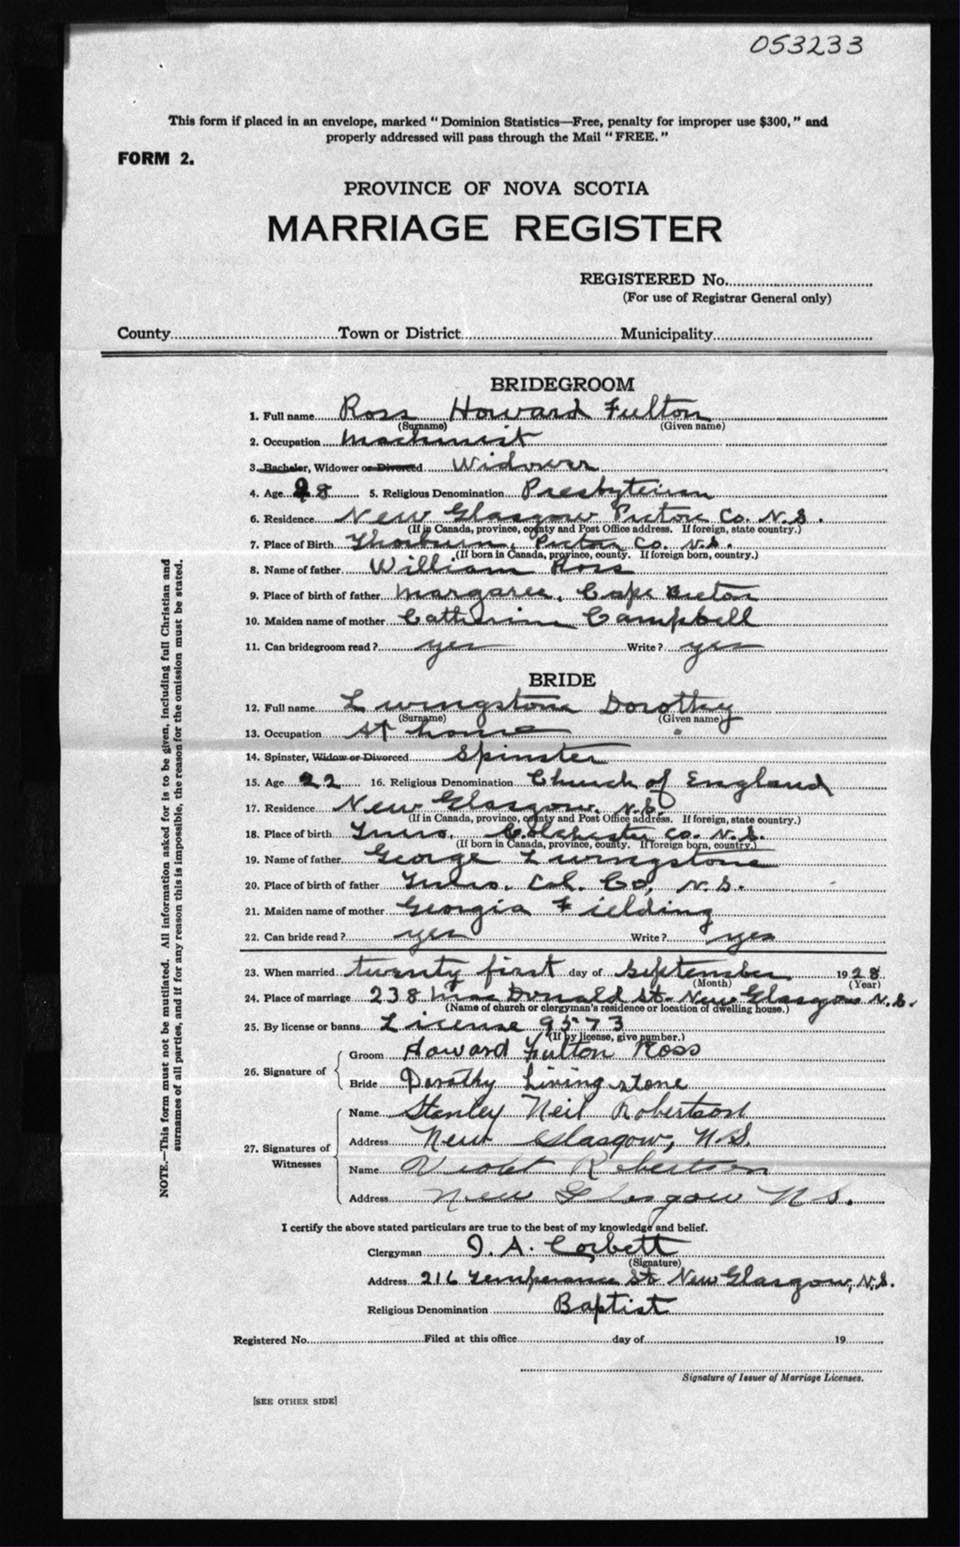 053233
This form if placed in an envelope, marked "Dominion Statistics—Free, penalty for improper use $300," and
properly addressed will pass through the Mail "FREE."
FORM 2.
PROVINCE OF NOVA SCOTIA
MARRIAGE REGISTER
REGISTERED No.
(For use of Registrar General only)
County Town or District Municipality
BRIDEGROOM
1. Full name Ross Howard Fulton
(Surname) (Given name)
2. Occupation Machinist
3. Bachelor, Widower or Divorced Widower
4. Age 28 5. Religious Denomination Presbyterian
6. Residence New Glasgow Pictou Co. N.S.
(If in Canada, province, county and Post Office address. If foreign, state country.)
7. Place of Birth Thorburn, Pictou Co. N.S.
(If born in Canada, province, county. If foreign born, country.)
8. Name of father William Ross
9. Place of birth of father Margaree, Cape Breton
10. Maiden name of mother Catherine Campbell
11. Can bridegroom read? yes Write? yes
BRIDE
12. Full name Livingstone Dorothy
(Surname) (Given name)
13. Occupation At home
14. Spinster, Widow or Divorced Spinster
15. Age 22 16. Religious Denomination Church of England
17. Residence New Glasgow, N.S.
(If in Canada, province, county and Post Office address. If foreign, state country.)
18. Place of birth Truro, Colchester Co. N.S.
(If born in Canada, province, county. If foreign born, country.)
19. Name of father George Livingstone
20. Place of birth of father Truro, Col. Co, N.S.
21. Maiden name of mother Georgia Fielding
22. Can bride read? yes Write? yes
23. When married twenty first day of September 1928
(Month) (Year)
24. Place of marriage 238 MacDonald St. New Glasgow N.S.
(Name of church or clergyman's residence or location of dwelling house.)
25. By license or banns License 9573
(If by license, give number.)
26. Signature of Groom Howard Fulton Ross
Bride Dorothy Livingstone
27. Signatures of Witnesses Name Stanley Neil Robertson
Address New Glasgow, N.S.
Name Violet Robertson
Address New Glasgow N.S.
I certify the above stated particulars are true to the best of my knowledge and belief.
Clergyman J. A. Corbett
(Signature)
Address 216 Temperance St. New Glasgow, N.S.
Religious Denomination Baptist
Registered No. Filed at this office day of 19
Signature of Issuer of Marriage Licenses.
[SEE OTHER SIDE]
NOTE.—This form must not be mutilated. All information asked for is to be given, including full Christian and
surnames of all parties, and if for any reason this is impossible, the reason for the omission must be stated.